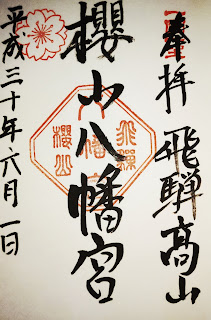 奉拝 飛騨髙山
櫻山八幡宮
飛騨
八幡宮
櫻山
平成三十年六月一日